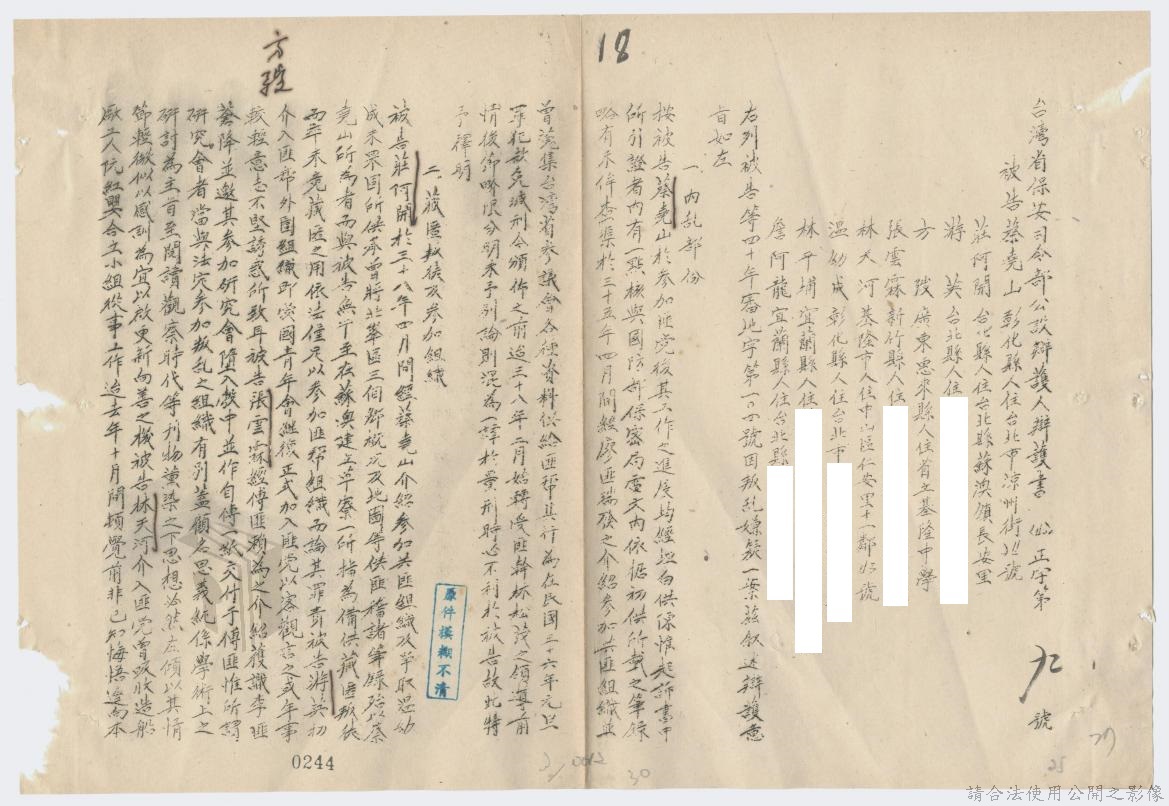 18
台灣省保安司令部公設辯護人辯護書
正字第 九 號
被告蔡堯山 彰化縣人住台北市涼州街 號
莊阿開 台北縣人住台北縣蘇澳鎮長安里
游 英 台北縣人住
方 陵 廣東惠來縣人住省立基隆中學
張雲霖 新竹縣人住
林天河 基隆市人住中山區仁安里十一鄰 號
溫幼成 彰化縣人住台北市
林平埔 宜蘭縣人住
詹阿龍 宜蘭縣人住台北縣
右列被告等四十年審地字第一０四號因叛乱嫌疑一案茲叙述辯護意
旨如左
一、內乱部份
按被告蔡堯山於參加匪党後其工作之進度均經坦白供陳惟起訴書中
所引證者內有一點核與國防部保密局電文內依據初供所載之筆錄
略有未侔查 於三十五年四月間經廖匪瑞發之介紹參加共匪組織並
曾蒐集台灣省參議會各種資料供給匪帮其行為在民国三十六年元旦
罪犯赦免減刑令頒佈之前迨三十八年二月始轉受匪幹林松茂之領導前
情後節略限分明未予列論則混為 於量刑時必不利於被告故此特
予釋明
二、藏匿叛徒及參加組織
被告莊阿開於三十八年四月間經蔡堯山介紹參加共匪組織及爭取温幼
成未果固所供承曾將北 區三個鄉概況及地圖等供匪 諸筆錄 以蔡
堯山所為者而與被告無 至在蘇澳建立草寮一所指為備供藏匿叛徒
而 未竟藏匪之用依法僅足以參加匪帮組織而論其罪責被告游英初
介入匪帮外围組織即 国青年會継後正式加入匪党以客觀言之或年事
較輕意志不堅誘惑所致耳被告張雲霖經傅匪賴為之介紹獲識李匪
蒼降並邀其參加研究會墮入彀中並作自傳一紙交付于傅匪惟所謂
研究會者當與法定參加叛乱之組織有別蓋顧名思義純係學術上之
研討為主旨至閱讀觀察時代等刊物薰染之下思想必然左傾以其情
節輕微似以感訓為宜以啟更新向善之機被告林天河介入匪党曾吸收造船
廠工人阮紅嬰合立小組從事工作迨去年十月間頓覺前非已知悔悟遂向本
方 陵
原件模糊不清
0244
30
25
請合法使用公開之影像